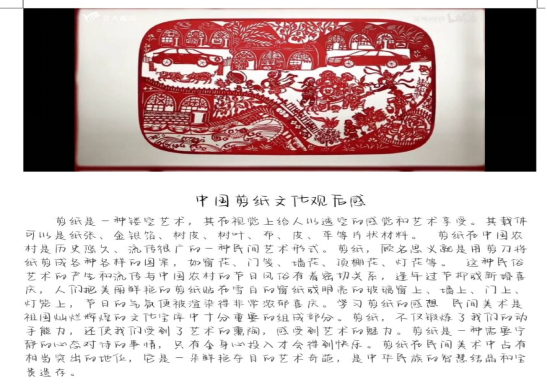 中国剪纸文化观后感
剪纸是一种镂空艺术，其在视觉上给人以透空的感觉和艺术享受。其载体
可以是纸张、金银箔、树皮、树叶、布、皮、革等片状材料。 剪纸在中国农
村是历史悠久、流传很广的一种民间艺术形式。剪纸，顾名思义就是用剪刀将
纸剪成各种各样的图案，如窗花、门笺、墙花、顶棚花、灯花等。 这种民俗
艺术的产生和流传与中国农村的节日风俗有着密切关系，逢年过节抑或新婚喜
庆，人们把美丽鲜艳的剪纸贴在雪白的窗纸或明亮的玻璃窗上、墙上、门上、
灯笼上，节日的气氛便被渲染得非常浓郁喜庆。学习剪纸的感想 民间美术是
祖国灿烂辉煌的文化宝库中十分重要的组成部分。剪纸，不仅锻炼了我们的动
手能力，还使我们受到了艺术的熏陶，感受到艺术的魅力。剪纸是一种需要宁
静的心态对待的事情，只有全身心投入才会得到快乐。剪纸在民间美术中占有
相当突出的地位，它是一朵鲜艳夺目的艺术奇葩，是中华民族的智慧结晶和宝
贵遗存。